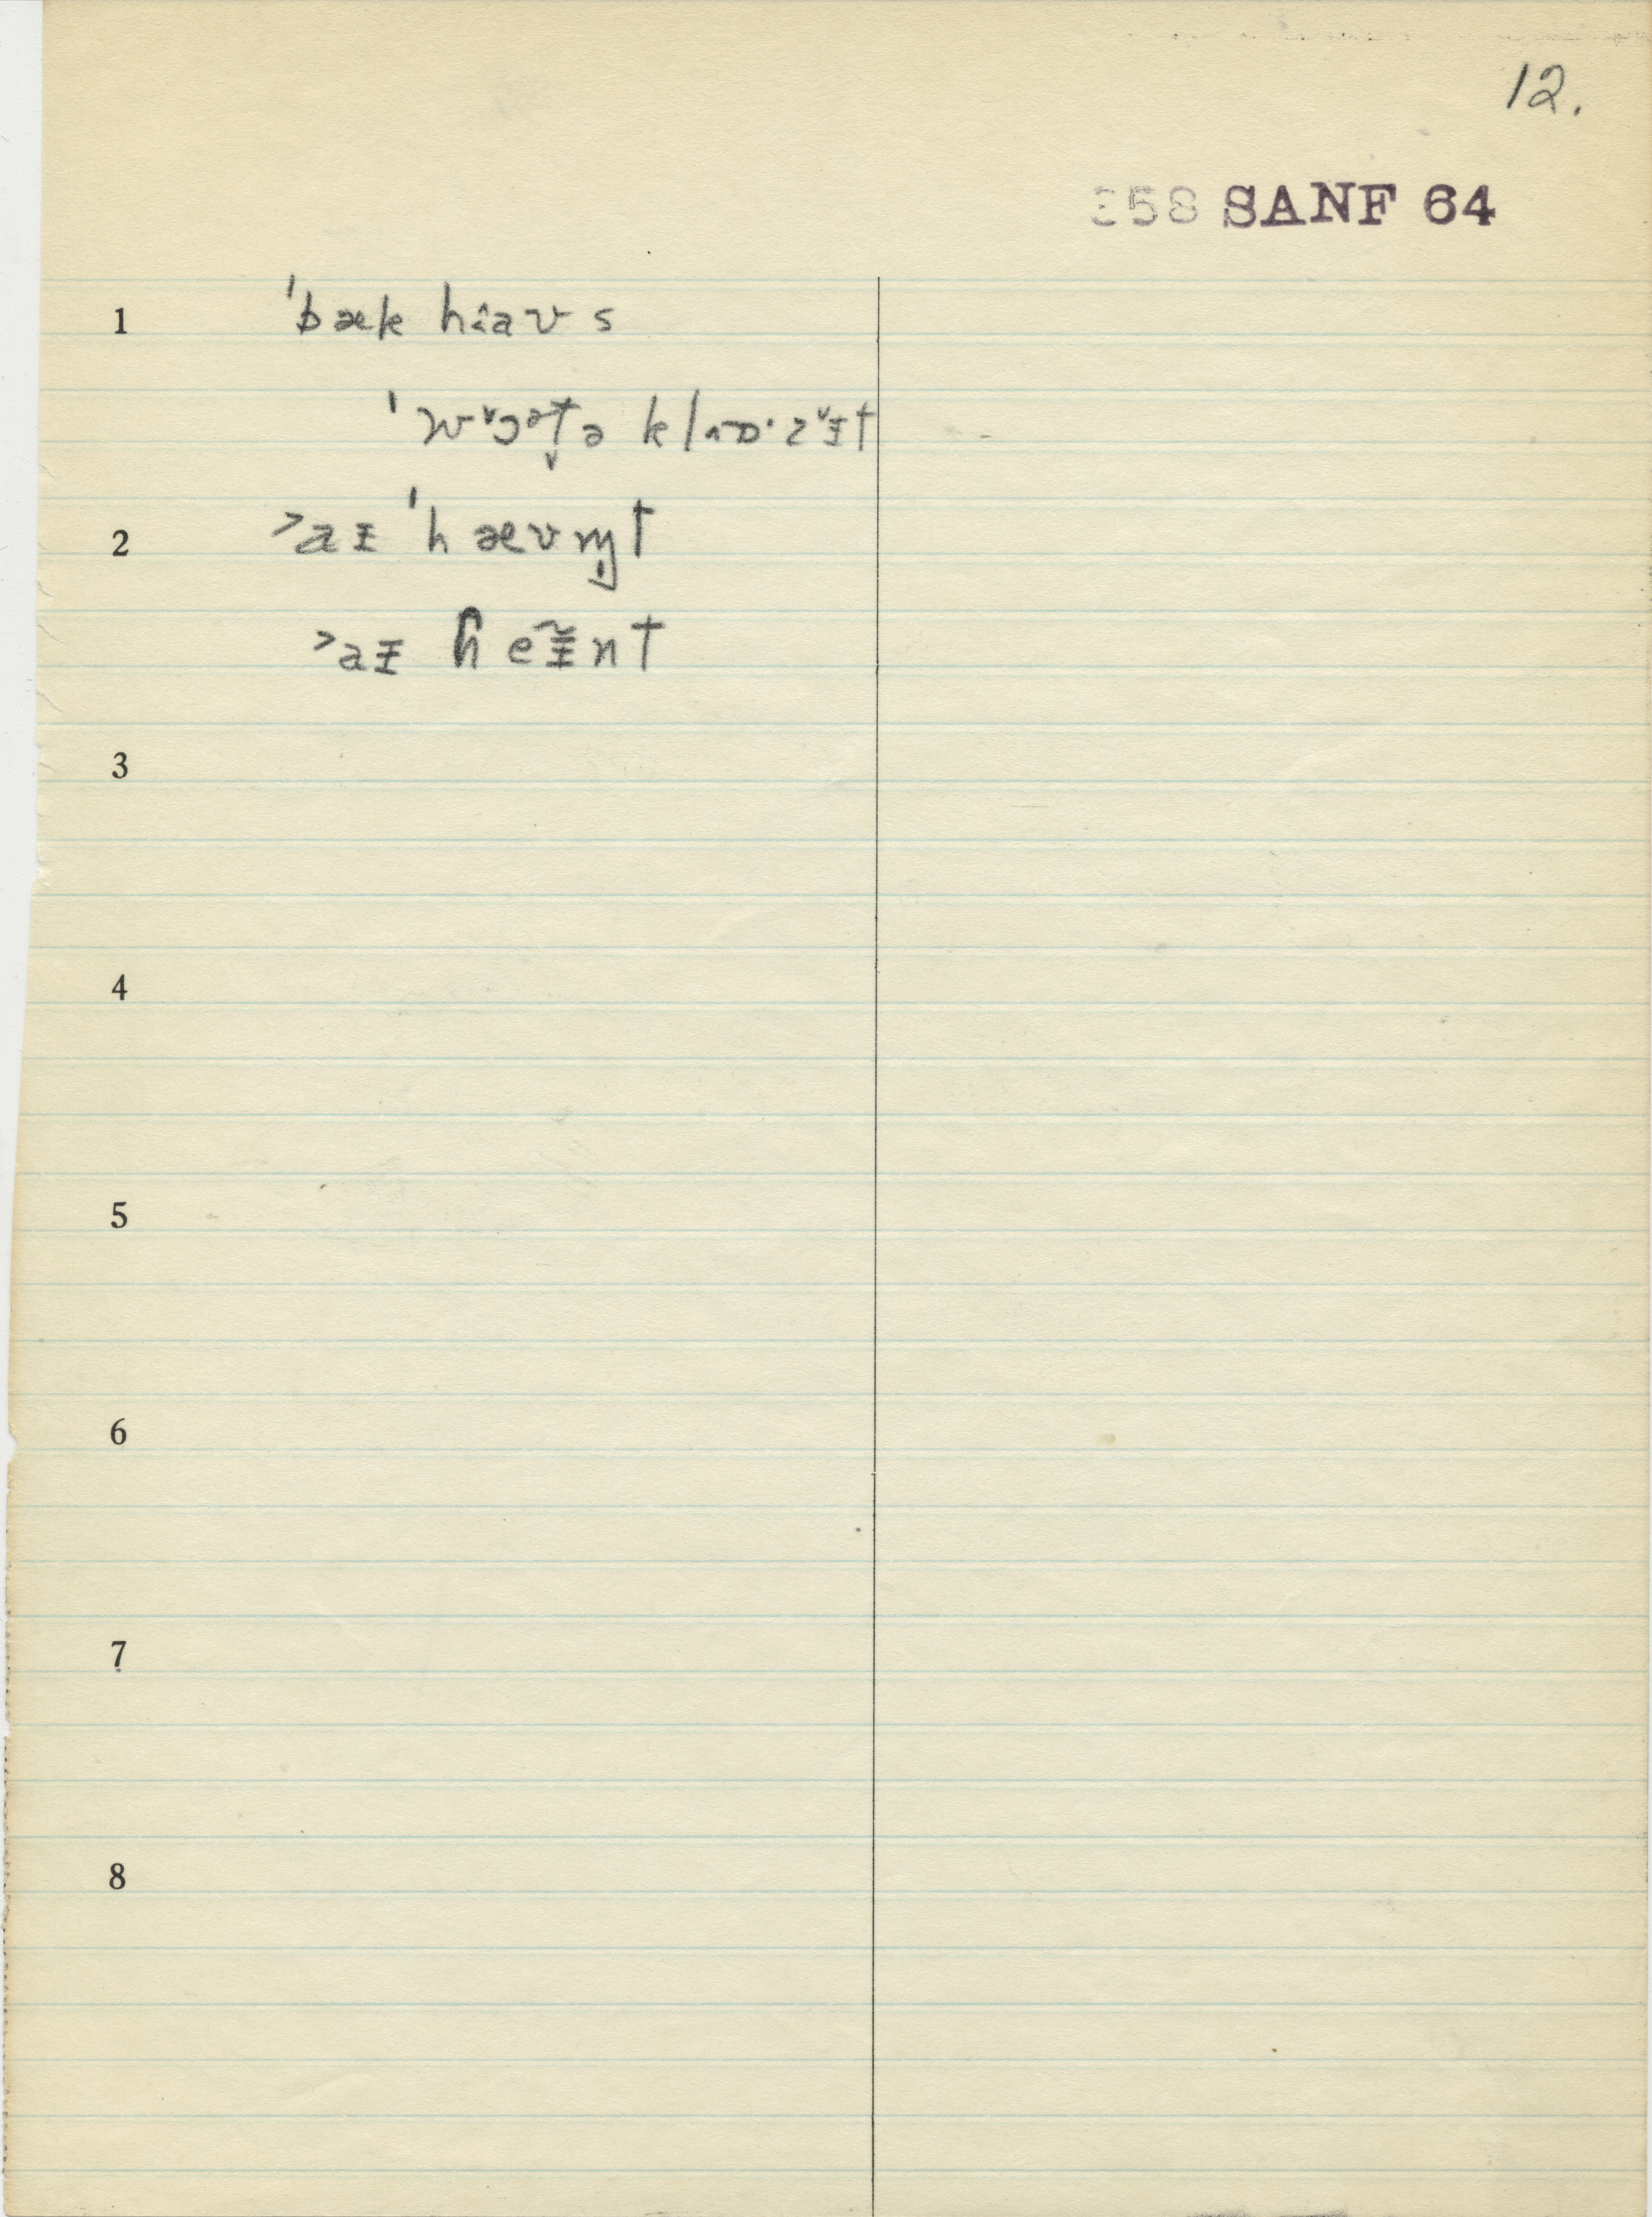 12.
358 SANF 64
1 ˈbæk hɪaʊs
ˈwɔətə klɒˑzɪt
2 >aɪ ˈhævn̩t
>aɪ ɦeɪ̃nt
3
4
5
6
7
8